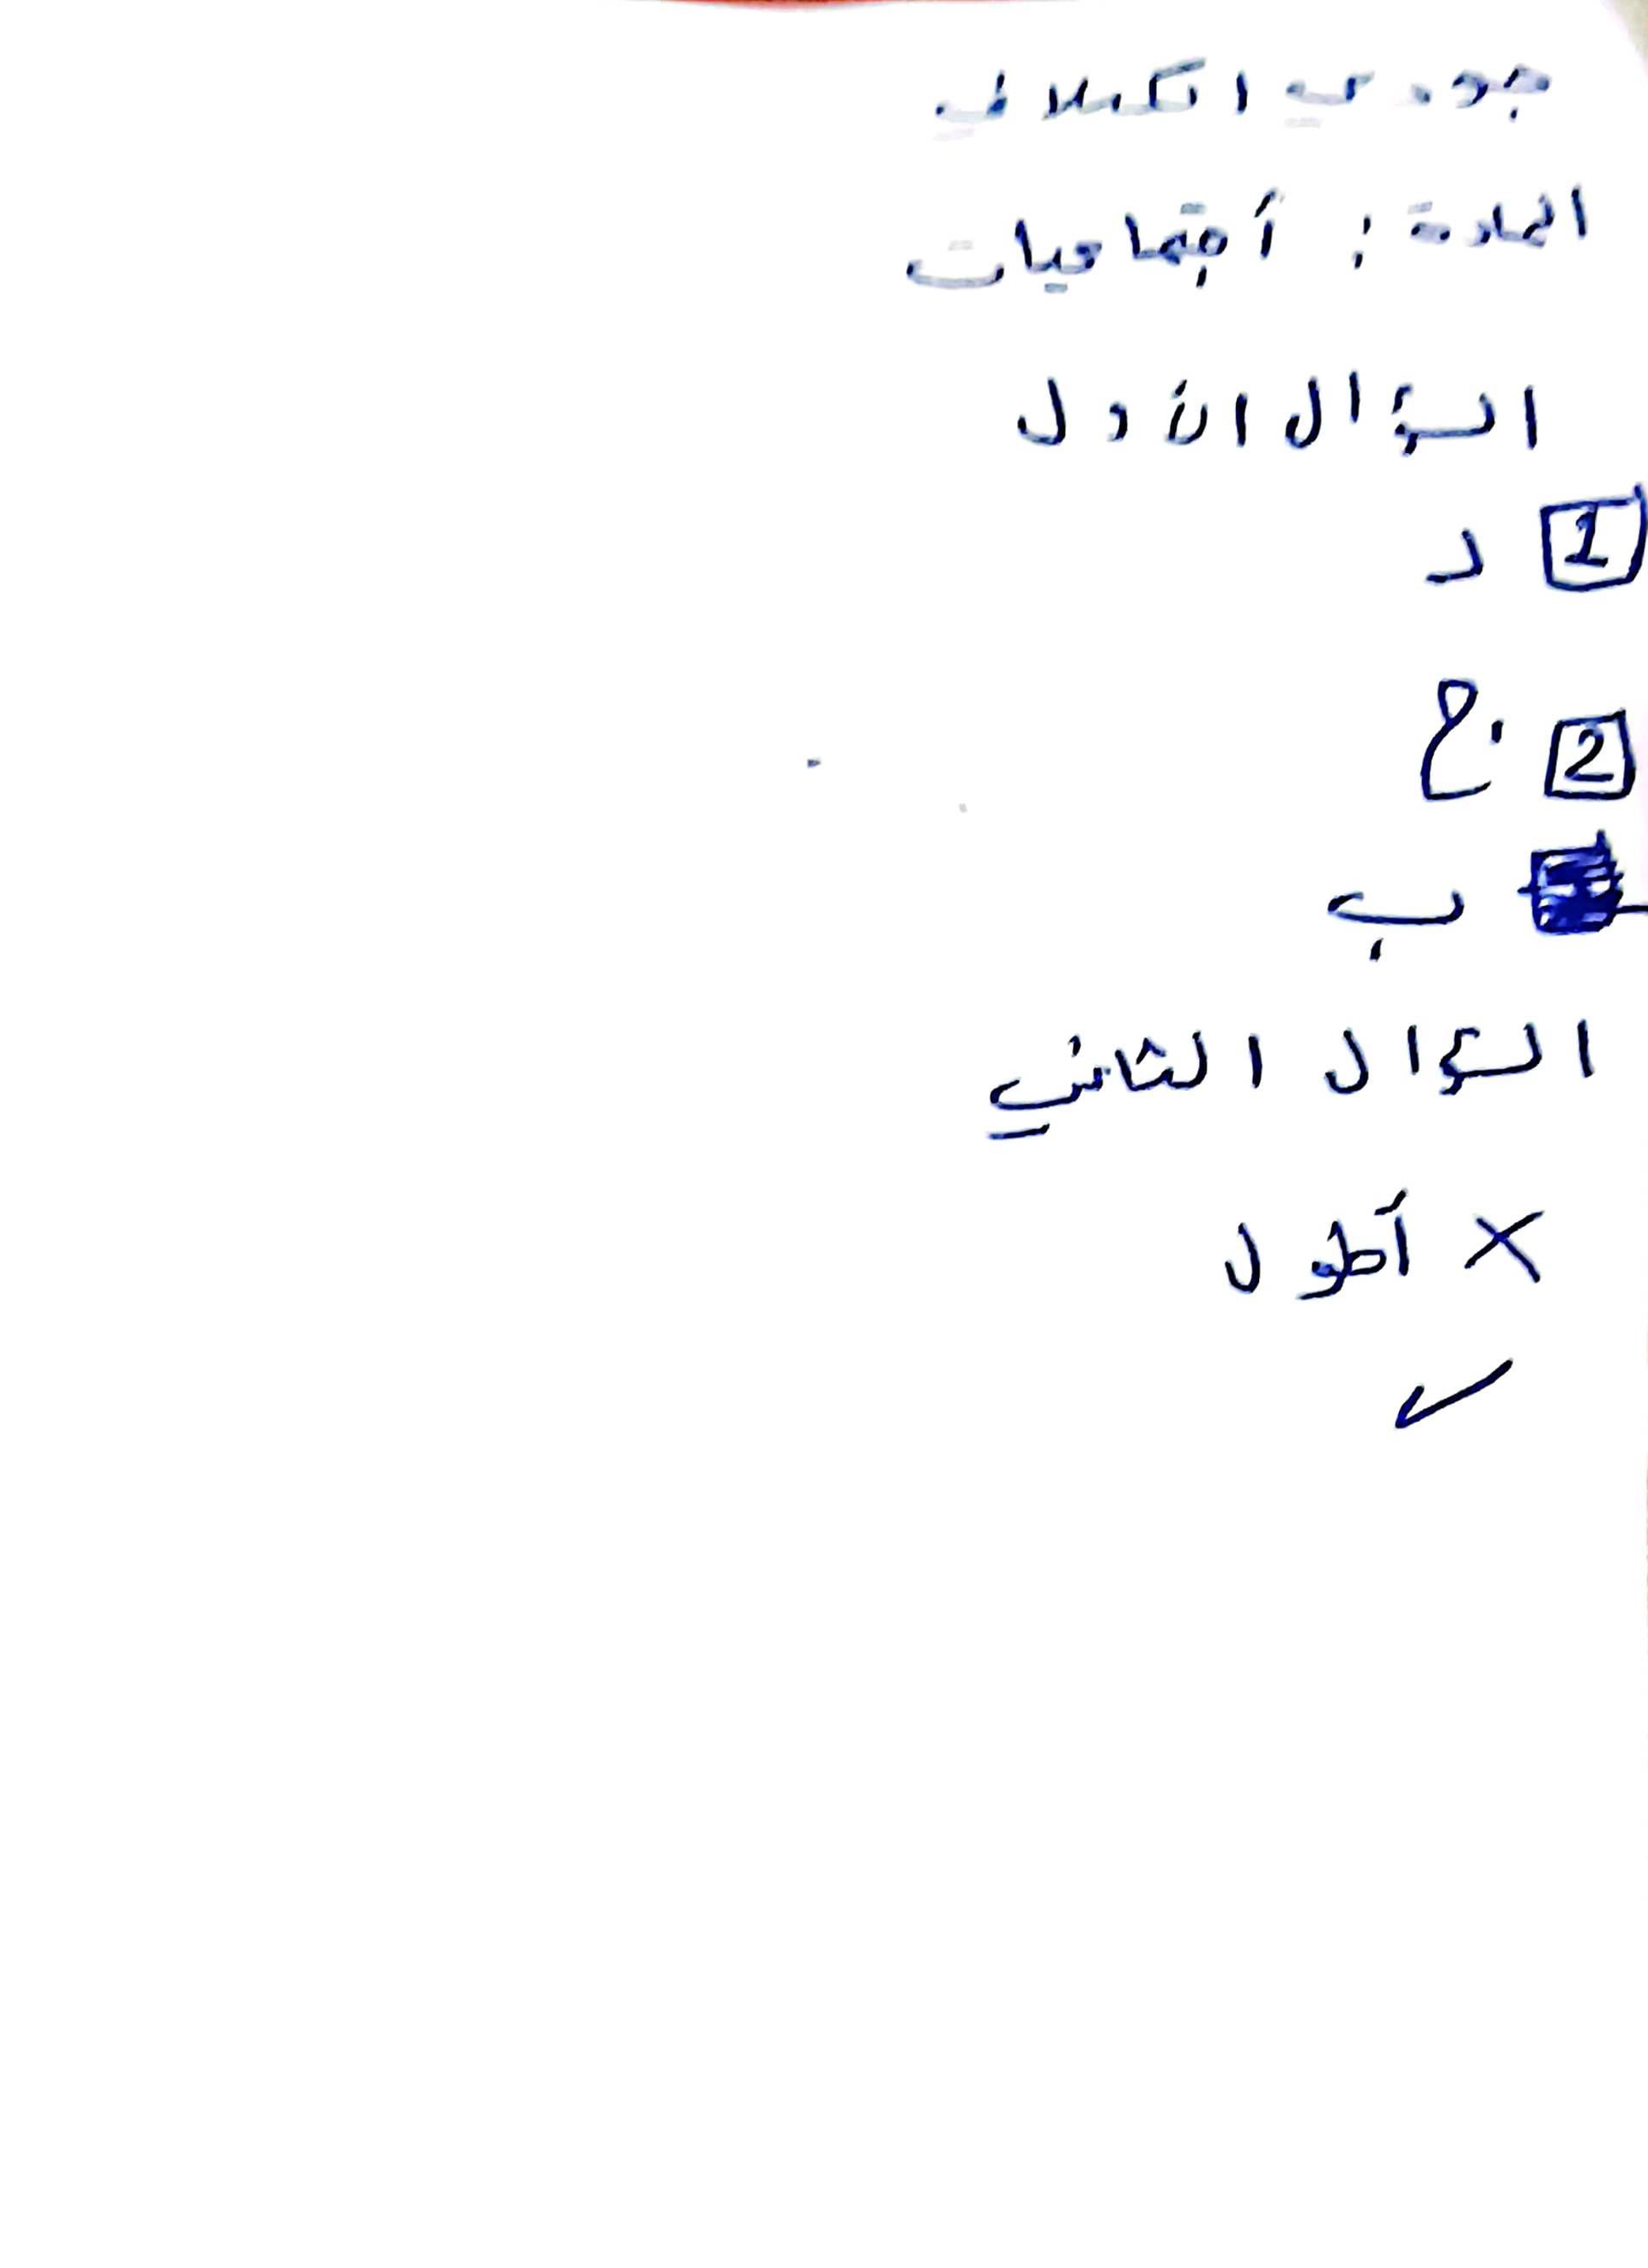 جودي الكيلاني
المادة : أجتماعيات
السؤال الأول
1 د
2 . ح
ب
السؤال الثاني
× أطول
✓